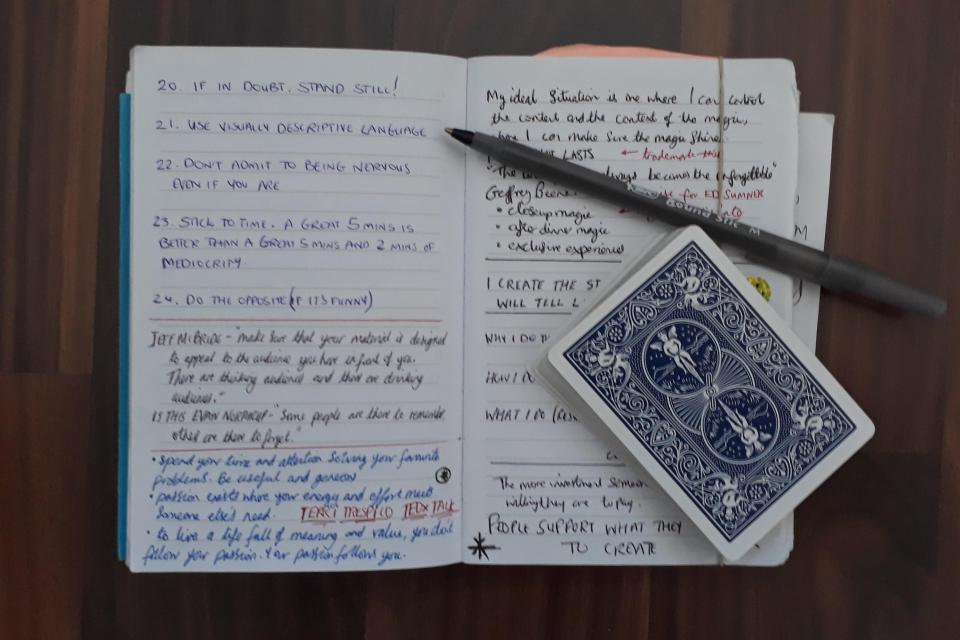 20. IF IN DOUBT. STAND STILL!
21. USE VISUALLY DESCRIPTIVE LANGUAGE
22. DON'T ADMIT TO BEING NERVOUS
EVEN IF YOU ARE
23. STICK TO TIME. A GREAT 5 MINS IS
BETTER THAN A GREAT 5 MINS AND 2 MINS OF
MEDIOCRITY.
24. DO THE OPPOSITE (IF IT'S FUNNY)
JEFF McBRIDE - "make sure that your material is designed
to appeal to the audience you have in front of you.
There are thinking audiences and there are drinking
audiences."
IS THIS EVAN "Some people are there to remember,
others are there to forget."
• Spend your time and attention solving your favourite
problems. Be useful and generous
• passion exists where your energy and effort meets
someone else's need. TERRI TRESPICIO TEDx TALK
• to live a life full of meaning and value, you don't
follow your passion. Your passion follows you.
My ideal situation is one where I can control
the content and the context of the magic,
where I can make sure the magic shines.
LASTS ← trademark this
"The always becomes the unforgettable"
Geoffrey for ED SUMNER
• closeup magic
• after dinner magic
• exclusive experiences
I CREATE THE ST
WILL TELL
WHY I DO TH
HOW I DO
WHAT I DO
The more invested someone
willing they are to pay.
PEOPLE SUPPORT WHAT THEY
TO CREATE
M